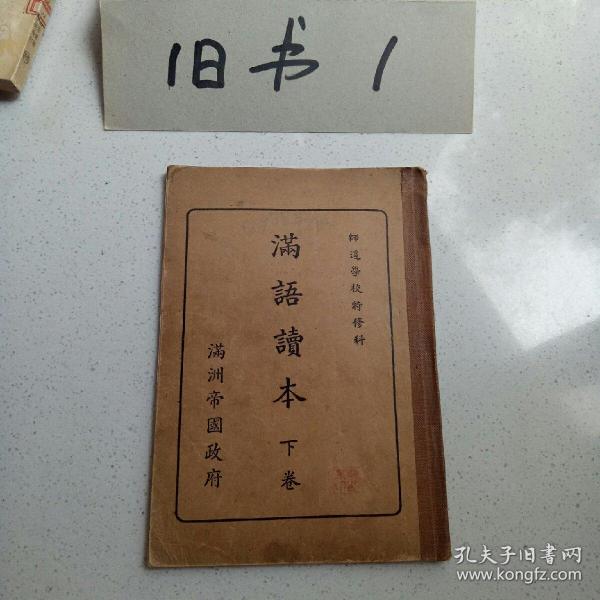 旧书 1
師道學校特修科
滿語讀本 下卷
滿洲帝國政府
孔夫子旧书网
www.kongfz.com